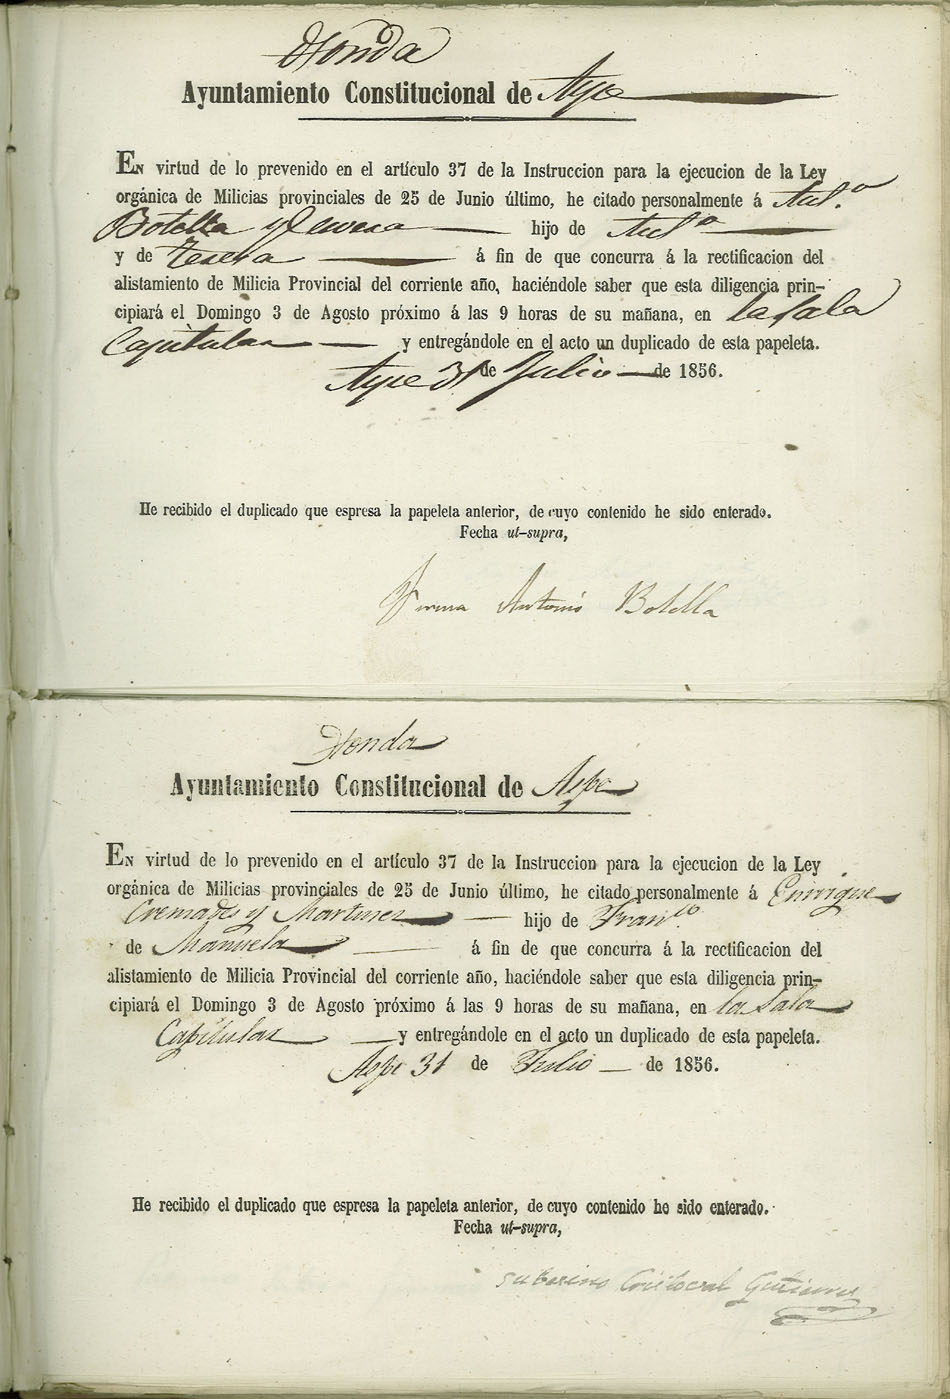 Honda
Ayuntamiento Constitucional de Aspe
EN virtud de lo prevenido en el artículo 37 de la Instruccion para la ejecucion de la Ley
orgánica de Milicias provinciales de 25 de Junio último, he citado personalmente á Ant.º
Botella y hijo de Ant.º
y de Teresa á fin de que concurra á la rectificacion del
alistamiento de Milicia Provincial del corriente año, haciéndole saber que esta diligencia prin-
cipiará el Domingo 3 de Agosto próximo á las 9 horas de su mañana, en la Sala
Capitular y entregándole en el acto un duplicado de esta papeleta.
Aspe 31 de Julio de 1856.
He recibido el duplicado que espresa la papeleta anterior, de cuyo contenido he sido enterado.
Fecha ut-supra,
Firma Antonio Botella
Honda
Ayuntamiento Constitucional de Aspe
EN virtud de lo prevenido en el artículo 37 de la Instruccion para la ejecucion de la Ley
orgánica de Milicias provinciales de 25 de Junio último, he citado personalmente á Enrique
Cremades y Martinez hijo de Fran.co
de Manuela á fin de que concurra á la rectificacion del
alistamiento de Milicia Provincial del corriente año, haciéndole saber que esta diligencia prin-
cipiará el Domingo 3 de Agosto próximo á las 9 horas de su mañana, en la Sala
Capitular y entregándole en el acto un duplicado de esta papeleta.
Aspe 31 de Julio de 1856.
He recibido el duplicado que espresa la papeleta anterior, de cuyo contenido he sido enterado.
Fecha ut-supra,